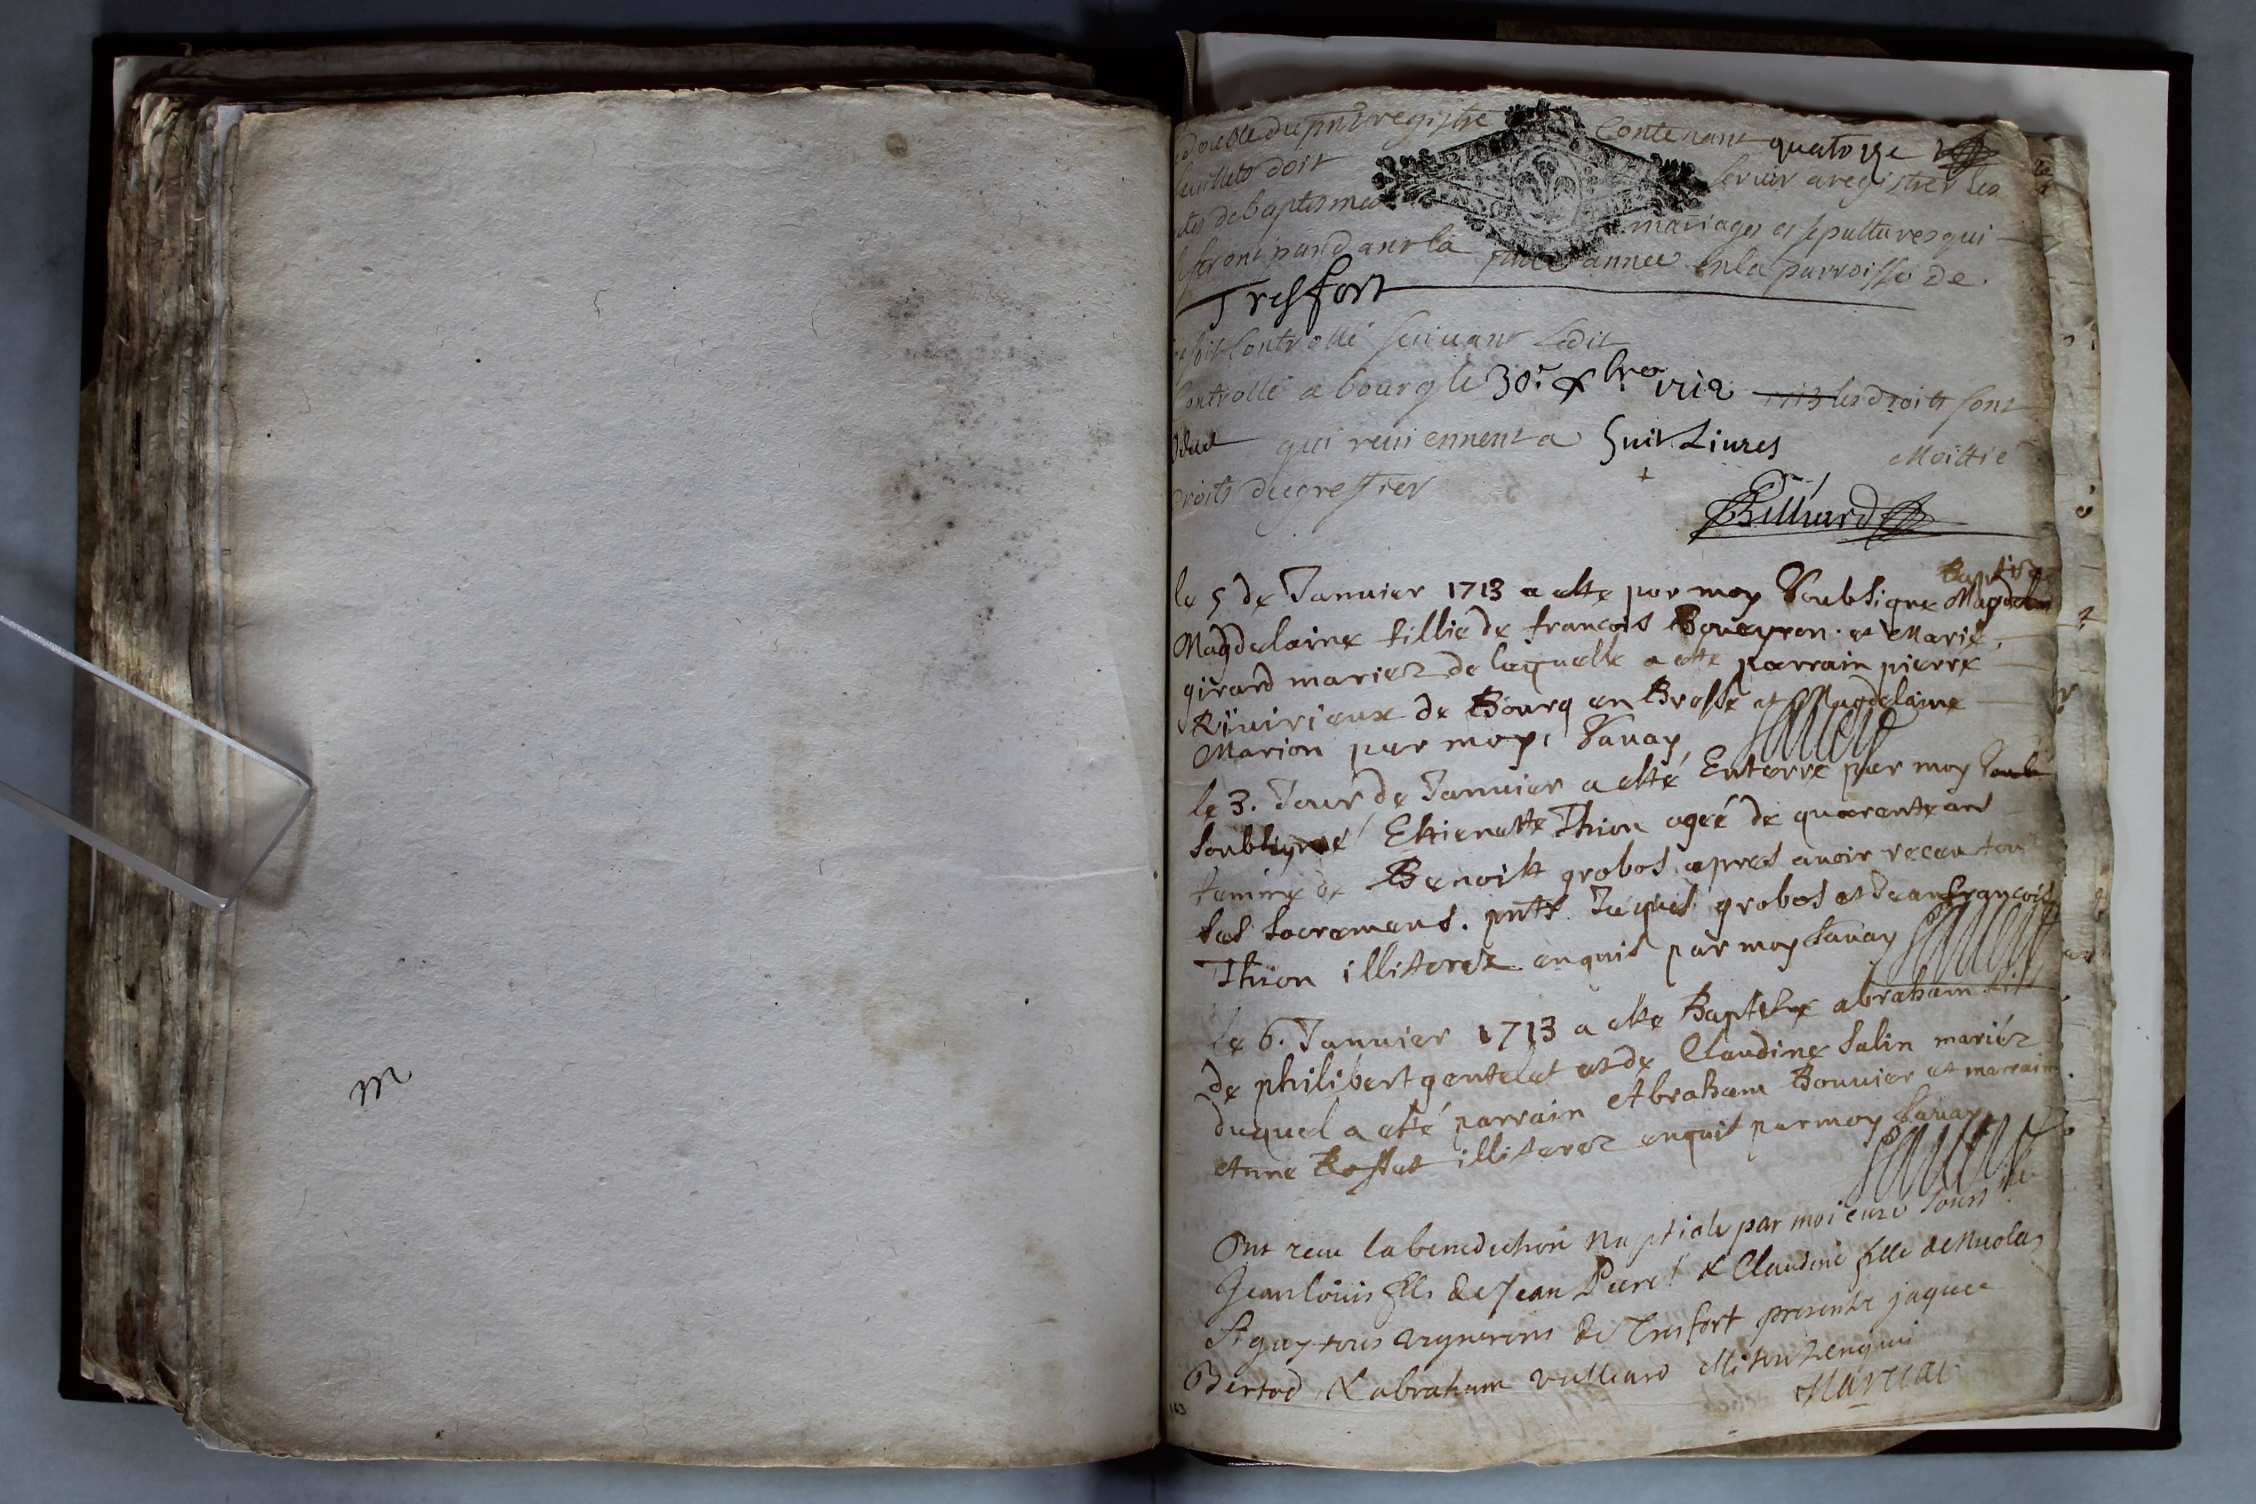 m
double du pnt registre Contenant quatorze
feuillets doit servir a registrer les
actes de baptismes mariages et sepultures qui
se feront pandant la pnte annee en la parroisse de
Tresfort
Controllé suivant ledit
Controllé a bourg le 30.e Xbre 1712 1713 les droits sont
qui reviennent a huit Livres Moittié
droits du greffier
Billiard
le 5 de Janvier 1713 a este par moy Soubsigne Magdelen baptise
Magdelaine fillie de francois Boveyron et Marie
girard mariez de laquelle a este parrain pierre
Rivirieux de Bourg en Bresse et Magdelaine
Marion par moy Savay
le 3. Jour de Janvier a esté Enterre par moy soub
soubsigné Estienette Thion ageé de quarante ans
femme de Benoist grobos apres avoir receu tou
ses sacremens. pnts Jaques grobos et Jean francois
Thion illiterez enquis par moy Savay
le 6. Janvier 1713 a este Baptise abraham fils
de philibert gentelet et de Claudine Salin mariéz
duquel a esté parrain Abraham Bouvier et marraine
Anne illiterez enquis par moy Savay
Ont receu la benediction Nuptiale par moi curé souss
Jean louis fils de Jean & Claudine fille de Nicolas
tous vignerons de Tresfort presents jaques
& abraham vulliard illiterez enquis
163